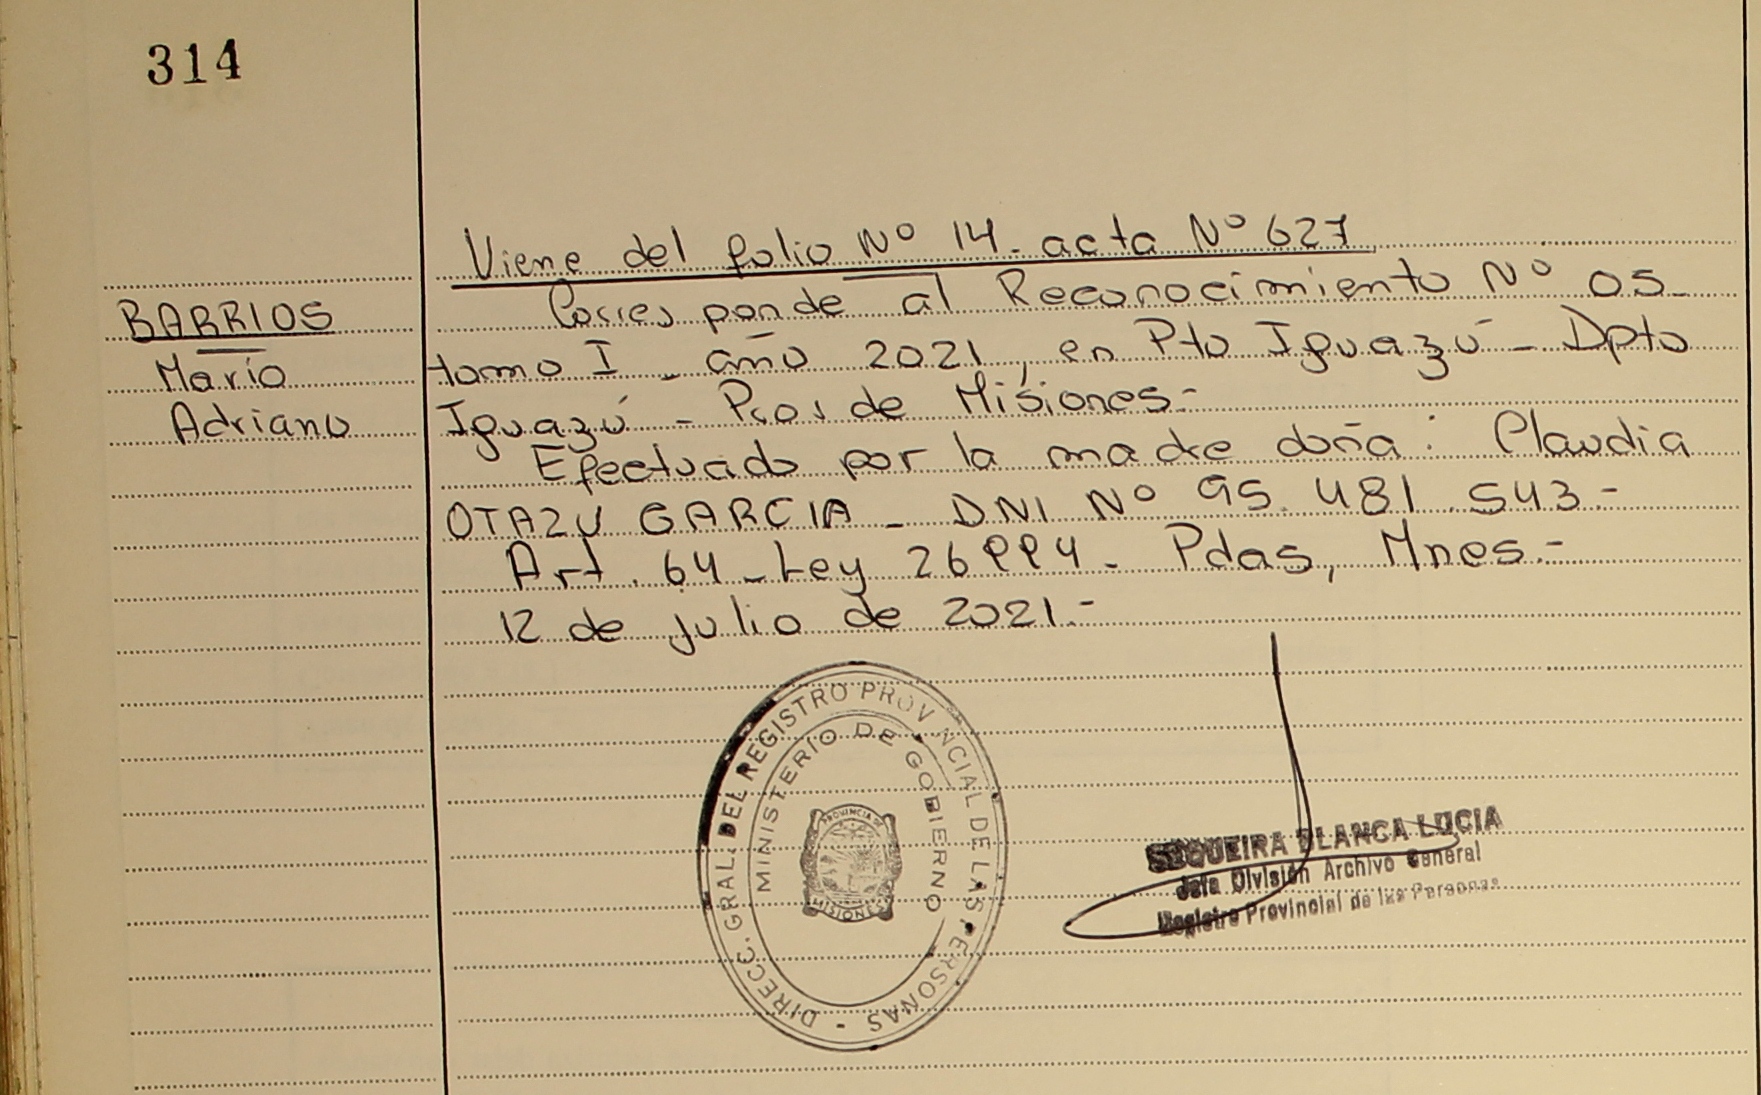 314
Viene del folio Nº 14. acta Nº 627
BARRIOS
Mario
Adriano
Corresponde al Reconocimiento Nº 05-
tomo I - año 2021, en Pto Iguazú - Dpto
Iguazú - Pcos de Misiones.-
Efectuado por la madre doña: Claudia
OTAZU GARCIA - DNI Nº 95.481.543.-
Art. 64 - Ley 26994 - Pdas, Mnes.-
12 de julio de 2021.-
DIRECC. GRAL. DEL REGISTRO PROVINCIAL DE LAS PERSONAS -
MINISTERIO DE GOBIERNO
PROVINCIA DE
MISIONES
SEQUEIRA BLANCA LUCIA
Jefa División Archivo General
Registro Provincial de las Personas